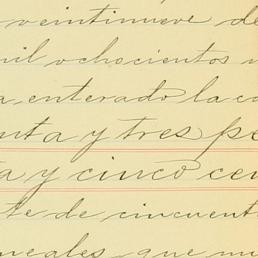 veintinueve de
mil ochocientos n
a enterado la ca
nta y tres pe
ta y cinco cen
te de cincuent
neales, que mu